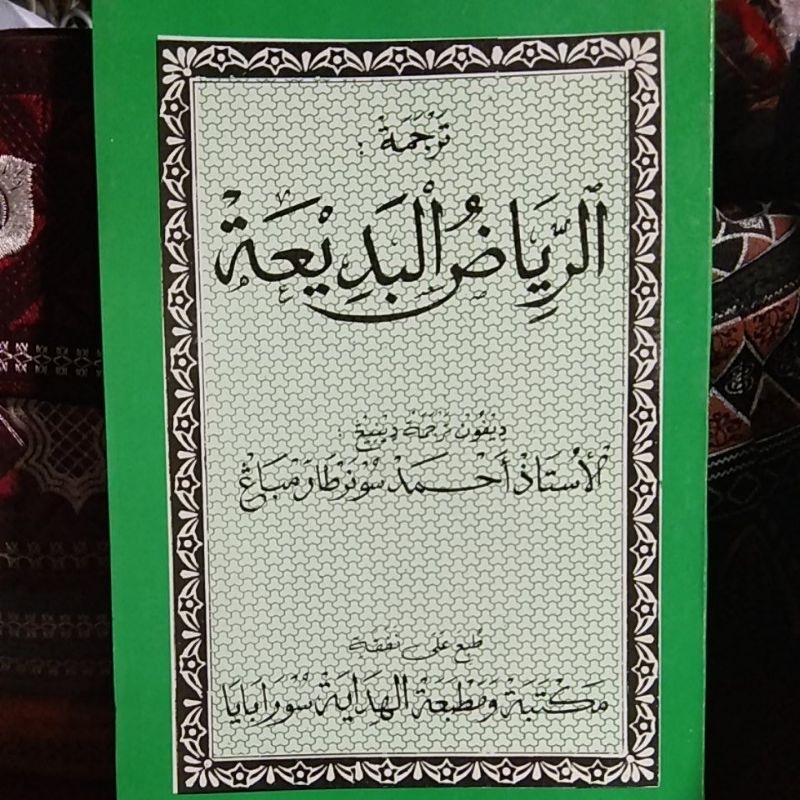 تَرْجَمَةْ :
اَلرِّيَاضُ الْبَدِيْعَةْ
دِيْفُوْنْ تَرْجَمَةْ دَيْنِيْڠْ :
الْأُسْتَاذْ أَحْمَدْ سُوْنَرْطَا رَمْبَاڠْ
طُبِعَ عَلَى نَفَقَةِ
مَكْتَبَةْ وَمَطْبَعَةْ الْهِدَايَةْ سُوْرَابَايَا